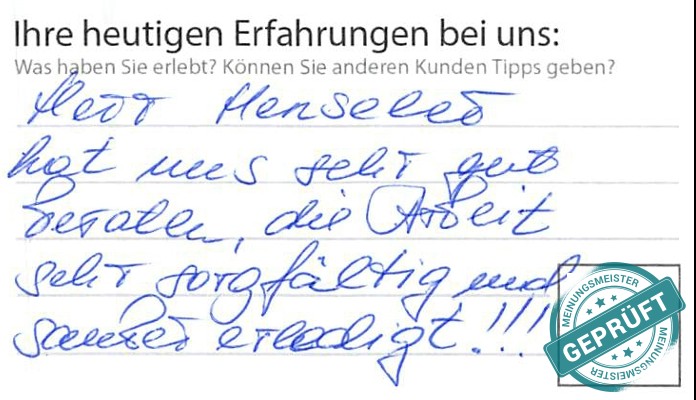 Ihre heutigen Erfahrungen bei uns:
Was haben Sie erlebt? Können Sie anderen Kunden Tipps geben?
Herr Henseler
hat uns sehr gut
beraten, die Arbeit
sehr sorgfältig und
sauber erledigt!!!
MEINUNGSMEISTER
GEPRÜFT
MEINUNGSMEISTER